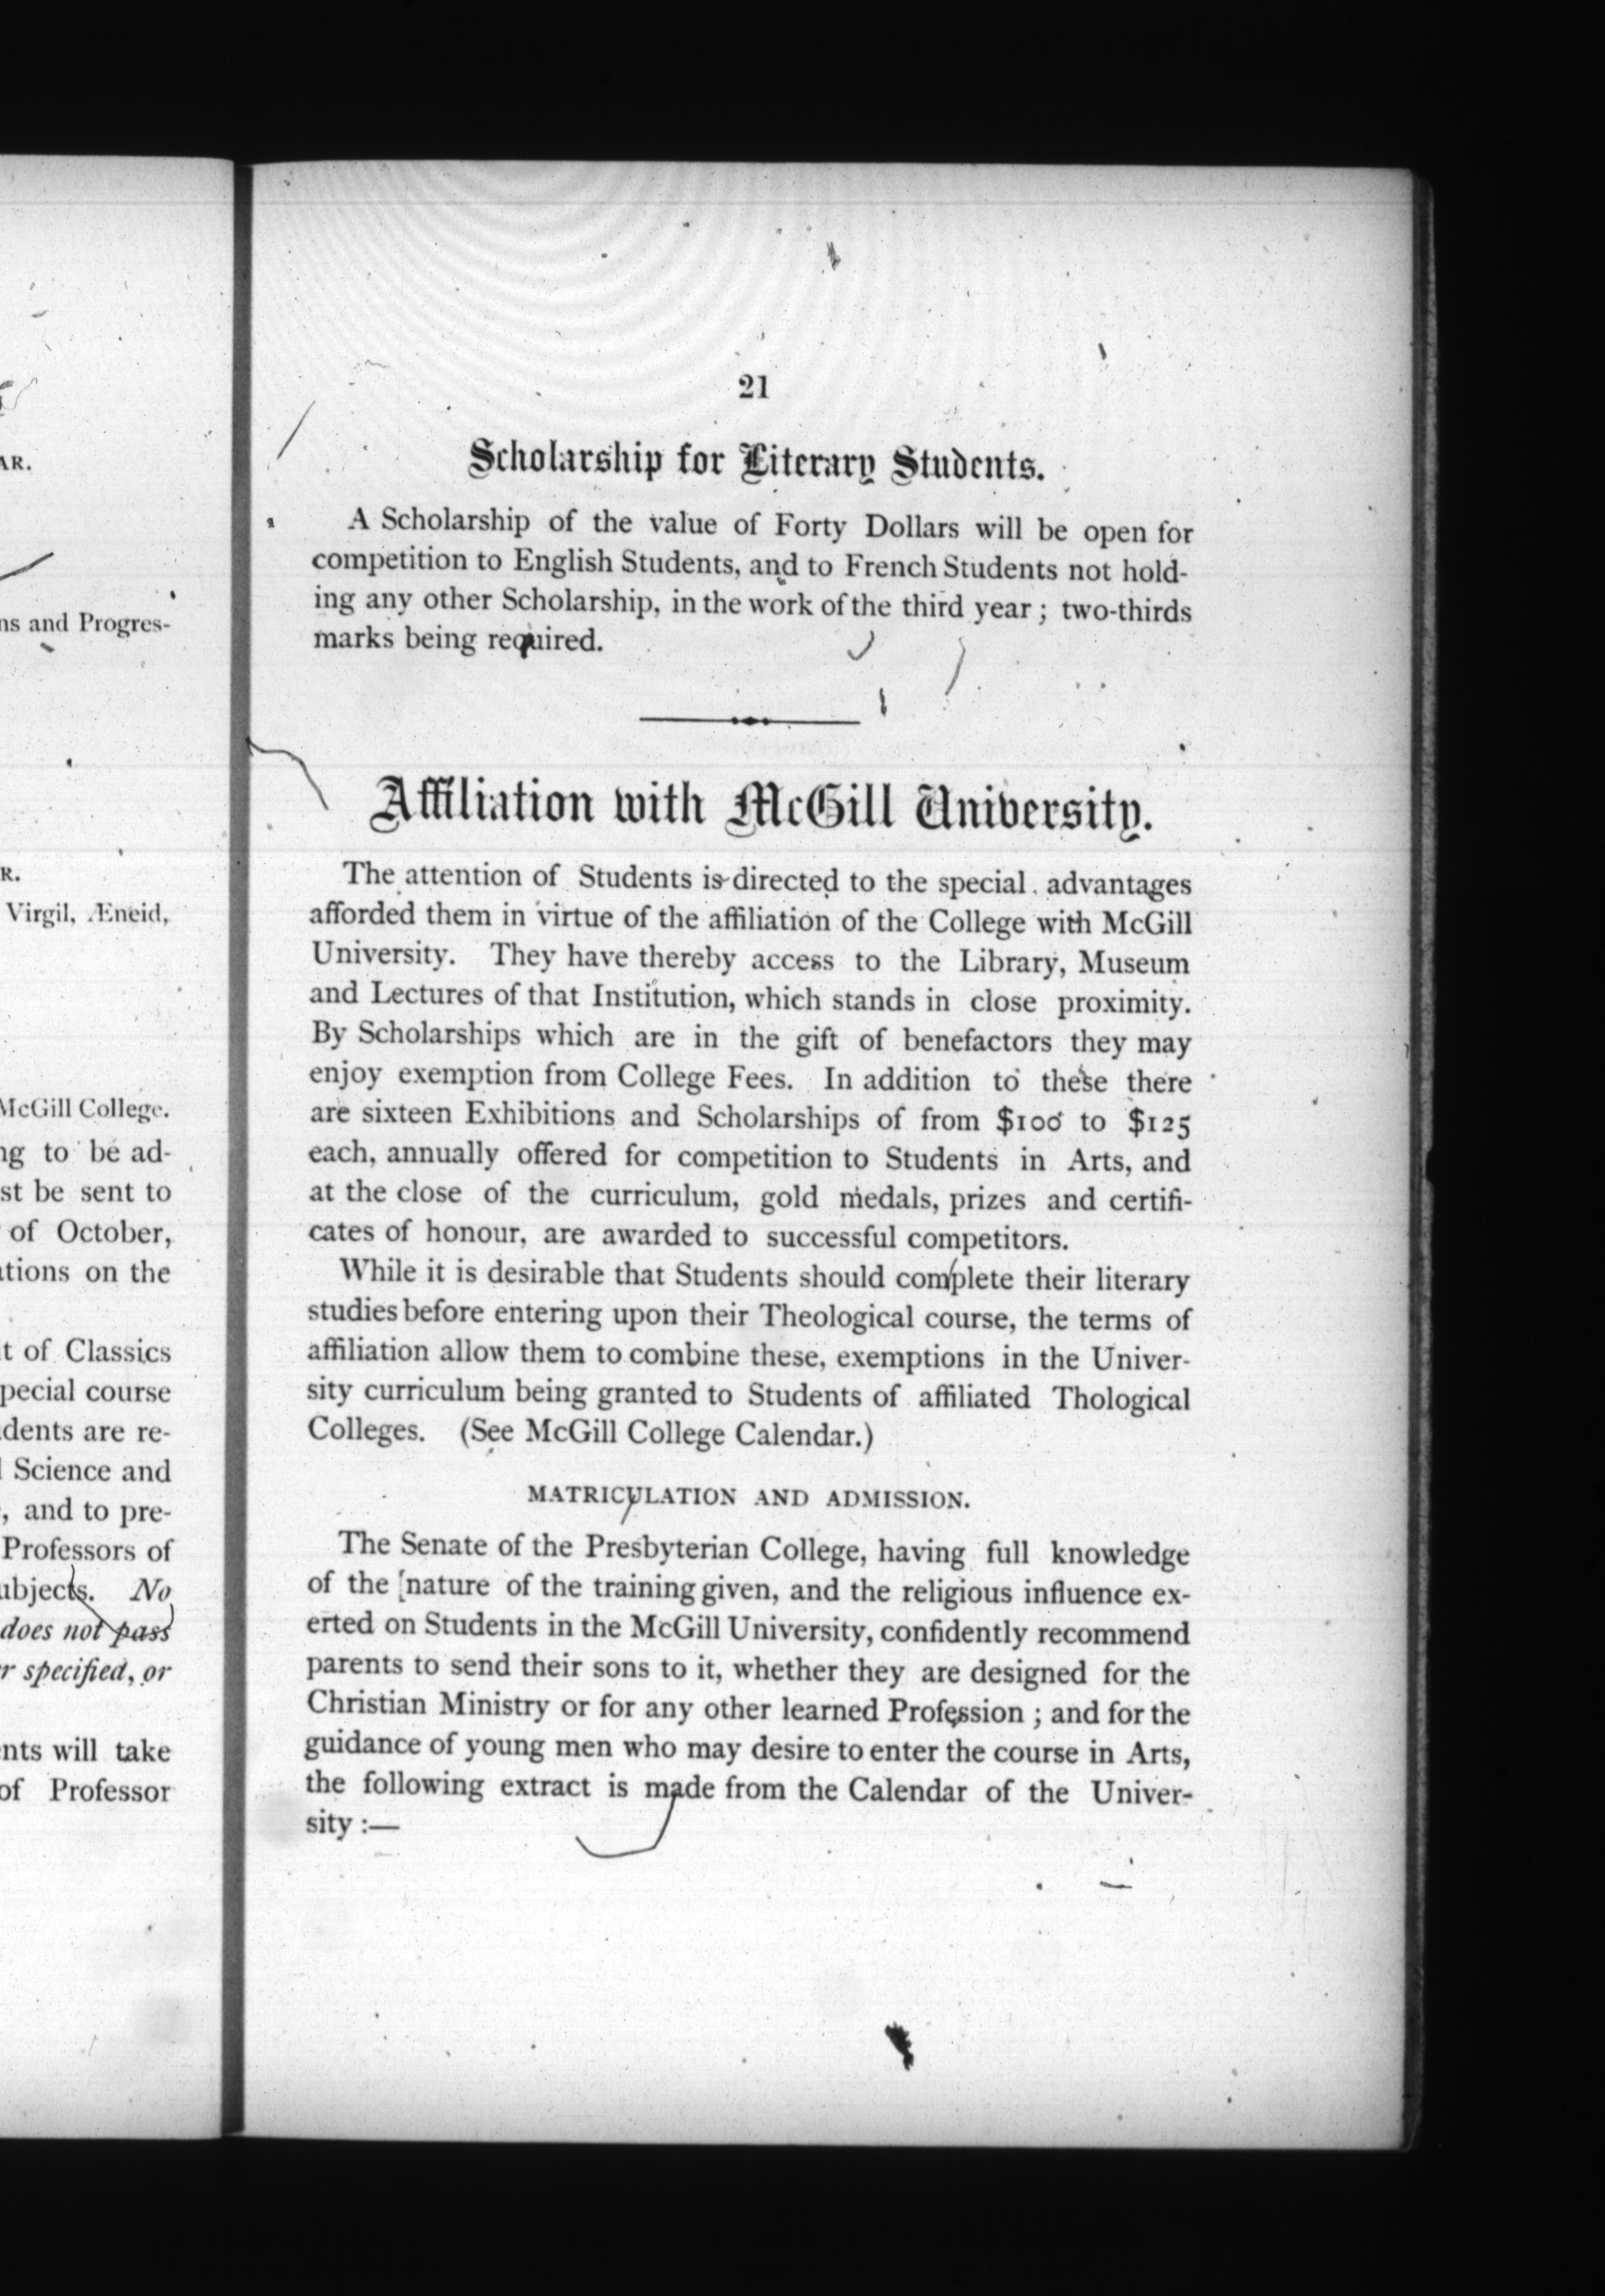 AR.
ns and Progres-
R.
Virgil, Æneid,
McGill College.
ng to be ad-
st be sent to
of October,
ations on the
t of Classics
pecial course
dents are re-
Science and
, and to pre-
Professors of
ubjects. No
does not pass
r specified, or
nts will take
of Professor
21
Scholarship for Literary Students.
A Scholarship of the value of Forty Dollars will be open for
competition to English Students, and to French Students not hold-
ing any other Scholarship, in the work of the third year ; two-thirds
marks being required.
Affiliation with McGill University.
The attention of Students is directed to the special advantages
afforded them in virtue of the affiliation of the College with McGill
University. They have thereby access to the Library, Museum
and Lectures of that Institution, which stands in close proximity.
By Scholarships which are in the gift of benefactors they may
enjoy exemption from College Fees. In addition to these there
are sixteen Exhibitions and Scholarships of from $100 to $125
each, annually offered for competition to Students in Arts, and
at the close of the curriculum, gold medals, prizes and certifi-
cates of honour, are awarded to successful competitors.
While it is desirable that Students should complete their literary
studies before entering upon their Theological course, the terms of
affiliation allow them to combine these, exemptions in the Univer-
sity curriculum being granted to Students of affiliated Thological
Colleges. (See McGill College Calendar.)
MATRICULATION AND ADMISSION.
The Senate of the Presbyterian College, having full knowledge
of the nature of the training given, and the religious influence ex-
erted on Students in the McGill University, confidently recommend
parents to send their sons to it, whether they are designed for the
Christian Ministry or for any other learned Profession ; and for the
guidance of young men who may desire to enter the course in Arts,
the following extract is made from the Calendar of the Univer-
sity :—